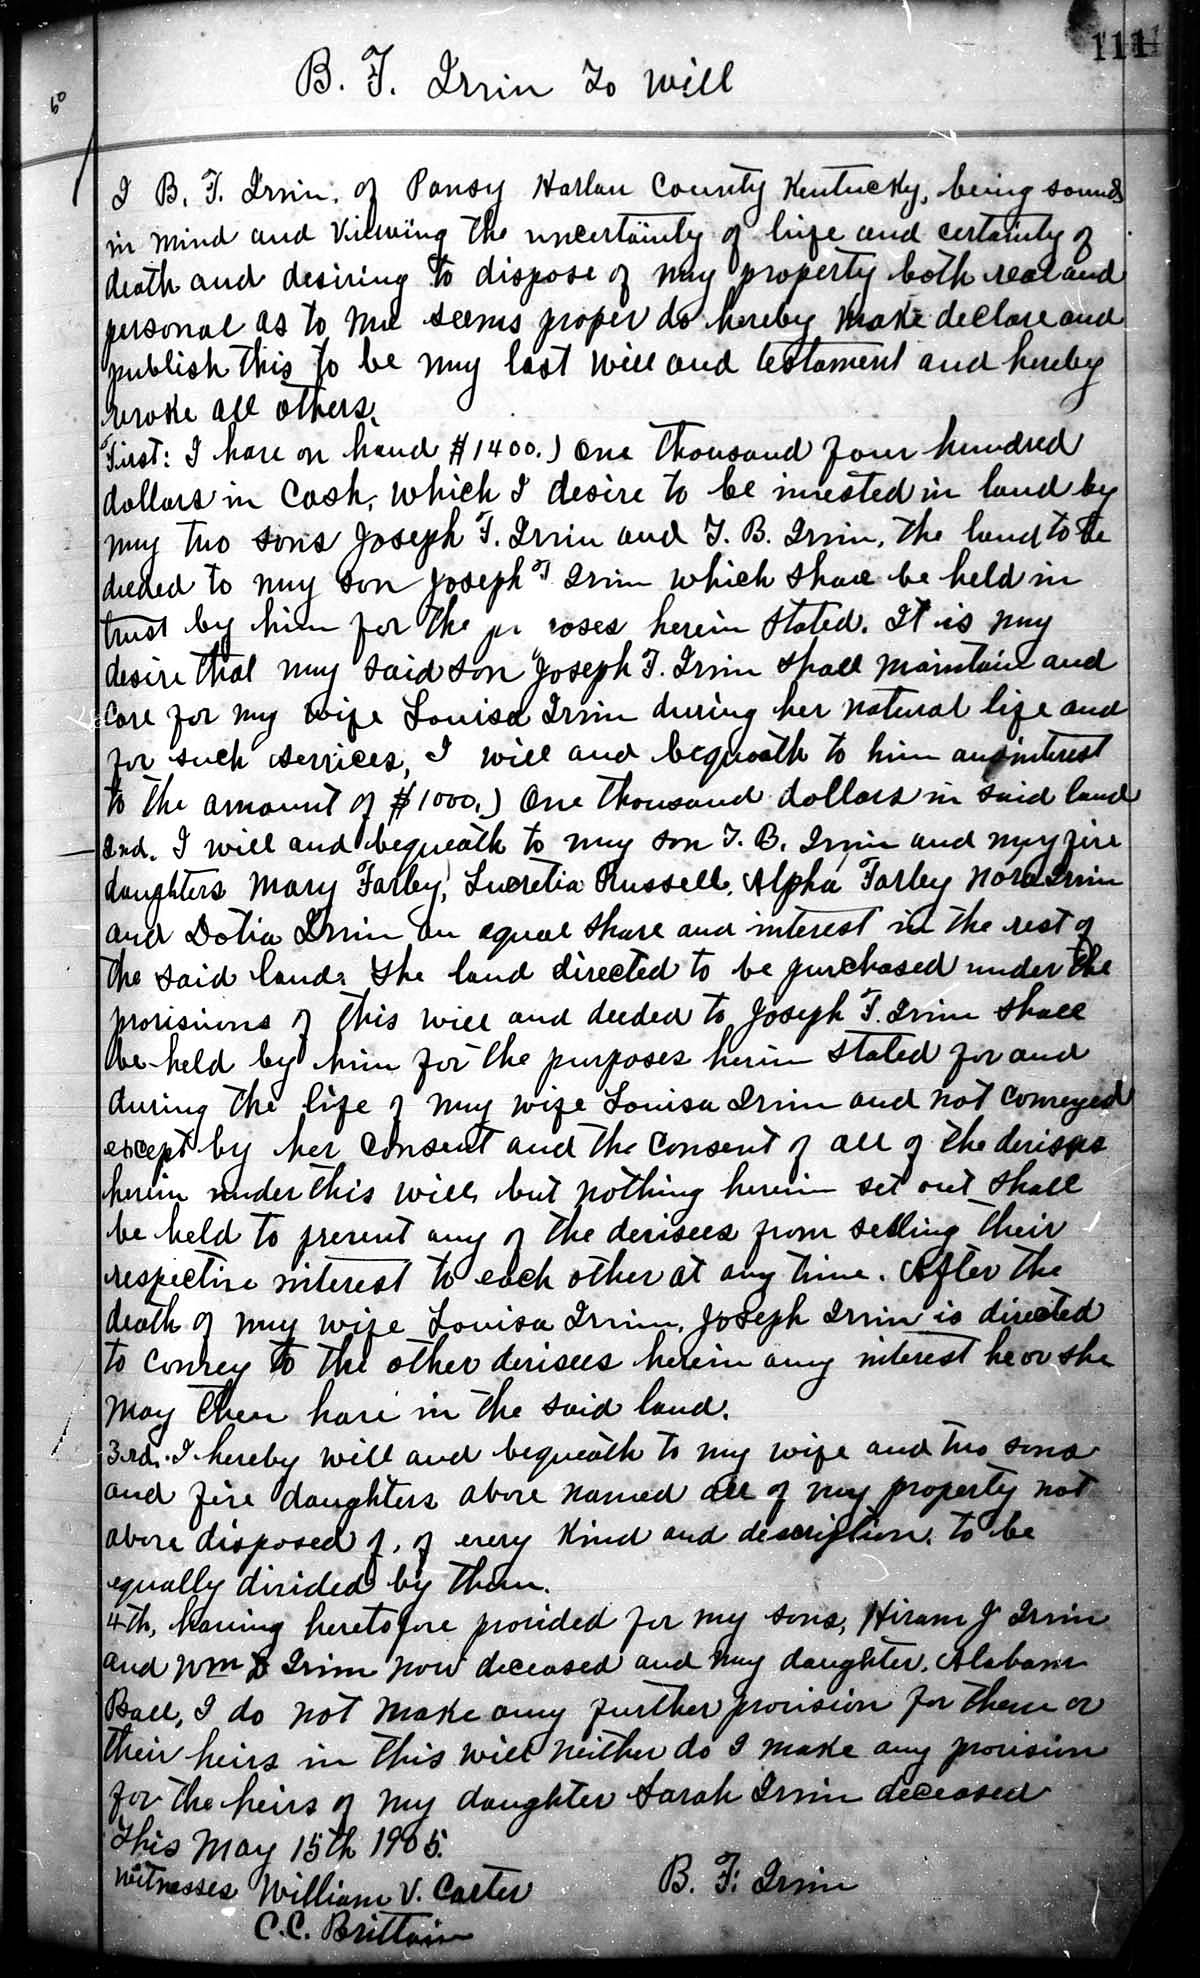 111
B. F. Irvin To Will
I B. F. Irvin, of Pansy Harlan County Kentucky, being sound
in mind and viewing the uncertainty of life and certainty of
death and desiring to dispose of my property both real and
personal as to me seems proper do hereby make declare and
publish this to be my last will and testament and hereby
revoke all others.
First: I have on hand $1400.) One thousand four hundred
dollars in cash, which I desire to be invested in land by
my two sons Joseph F. Irvin and T. B. Irvin, the land to be
deeded to my son Joseph F Irvin which shall be held in
trust by him for the pu roses herein stated. It is my
desire that my said son Joseph F. Irvin shall maintain and
care for my wife Louisa Irvin during her natural life and
for such services, I will and bequeath to him an interest
to the amount of $1000.) One thousand dollars in said land
2nd. I will and bequeath to my son T. B. Irvin and my five
daughters Mary Farley, Lucretia Russell, Alpha Farley Nora Irvin
and Dotia Irvin an equal share and interest in the rest of
the said land. The land directed to be purchased under the
provisions of this will and deeded to Joseph F. Irvin shall
be held by him for the purposes herein stated for and
during the life of my wife Louisa Irvin and not conveyed
except by her consent and the consent of all of the devisees
herein under this will, but nothing herein set out shall
be held to prevent any of the devisees from selling their
respective interest to each other at any time. After the
death of my wife Louisa Irvin, Joseph Irvin is directed
to convey to the other devisees herein any interest he or she
may then have in the said land.
3rd. I hereby will and bequeath to my wife and two sons
and five daughters above named all of my property not
above disposed of, of every kind and description, to be
equally divided by them.
4th, having heretofore provided for my sons, Hiram J Irvin
and Wm Irvin now deceased and my daughter, Alabam
Ball, I do not make any further provision for them or
their heirs in this will neither do I make any provision
for the heirs of my daughter Sarah Irvin deceased
This May 15th 1905.
Witnesses William V. Carter
B. F. Irvin
C.C. Brittain